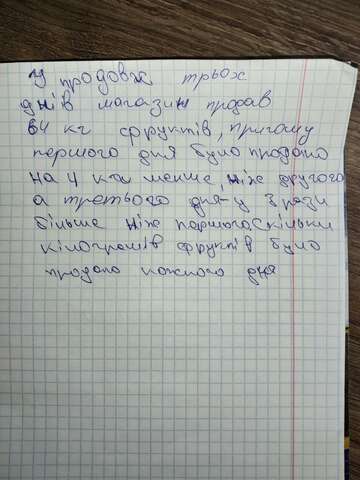 У продовж трьох
днів магазин продав
64 кг фруктів, причому
першого дня було продано
на 4 кг менше, ніж другого
а третього дня-у 3 рази
більше ніж першого Скільки
кілограмів фруктів було
продано кожного дня